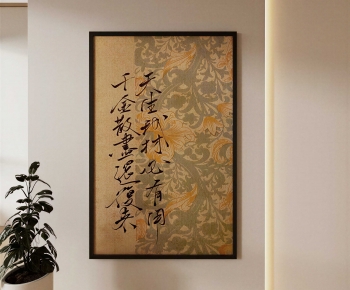 天生我材必有用
千金散盡還復來